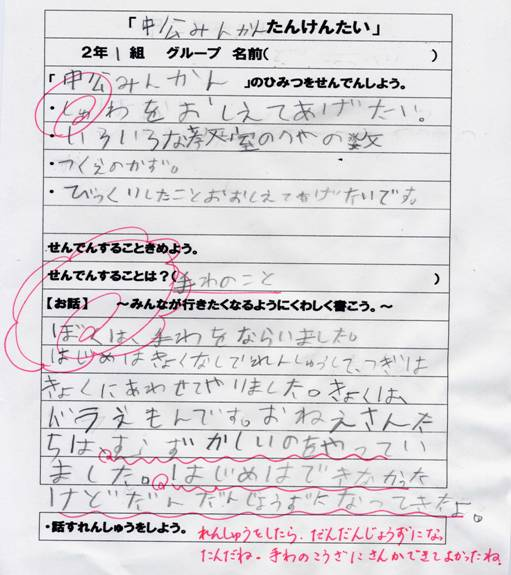 「中公みんかんたんけんたい」
2年1組 グループ 名前( )
「中公みんかん 」のひみつをせんでんしよう。
・しゅわをおしえてあげたい。
・いろいろな教室のへやの数
・つくえのかず。
・びっくりしたことおおしえてあげたいです。
せんでんすることきめよう。
せんでんすることは?(手わのこと )
【お話】 ～みんなが行きたくなるようにくわしく書こう。～
ぼくは、手わをならいました。
はじめはきょくなしでれんしゅうして、つぎは
きょくにあわせてやりました。きょくは、
ドラえもんです。おねえさんた
ちは、むずかしいのをやってい
ました。はじめはできなかった
けどだんだんじょうずになってきたよ。
・話すれんしゅうをしよう。
れんしゅうをしたら、だんだんじょうずにな
たんだね。手わのこうざにさんかできてよかったね。